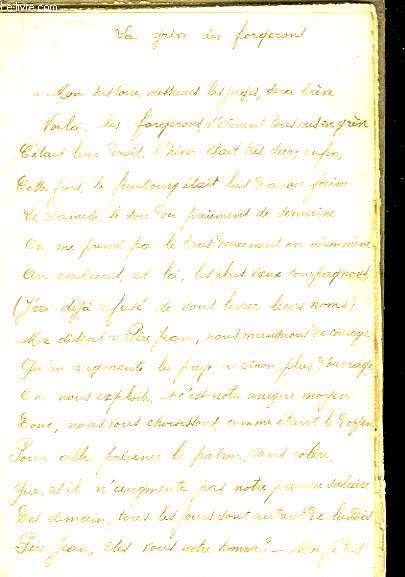 Le-livre.com
La grève des forgerons
« Mon histoire, messieurs les juges, sera brève
Voilà, les forgerons s'étaient tous mis en grève
C'était leur droit, l'hiver était très dur; enfin,
Cette fois, le faubourg était las d'avoir faim
Le samedi, le soir du paiement de semaine
On me prend par le bras doucement on m'emmène
Au cabaret, et là, les plus vieux compagnons
(J'ai déjà refusé de vous livrer leurs noms)
Me disent « Père Jean, nous manquons de courage
Qu'on augmente la paye, ou sinon plus d'ouvrage
On nous exploite, et c'est notre unique moyen
Donc, nous vous choisissons comme étant le doyen
Pour aller prévenir le patron, sans colère,
Que, s'il n'augmente pas notre pauvre salaire
Dès demain, tous les jours sont autant de lundis
Père Jean, êtes vous notre homme? – Moi je dis